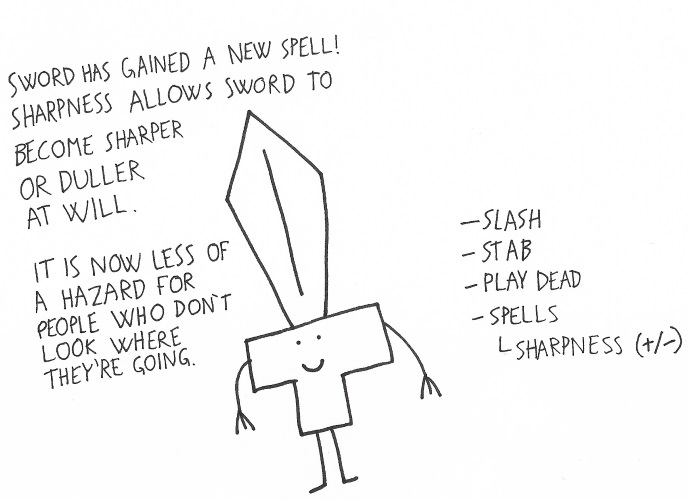 SWORD HAS GAINED A NEW SPELL!
SHARPNESS ALLOWS SWORD TO
BECOME SHARPER
OR DULLER
AT WILL.
IT IS NOW LESS OF
A HAZARD FOR
PEOPLE WHO DON'T
LOOK WHERE
THEY'RE GOING.
-SLASH
-STAB
-PLAY DEAD
-SPELLS
└SHARPNESS (+/-)